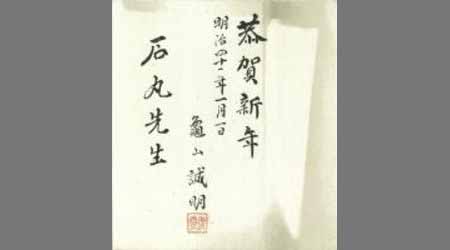 恭賀新年
明治四十一年一月一日
龜山誠明
石丸先生